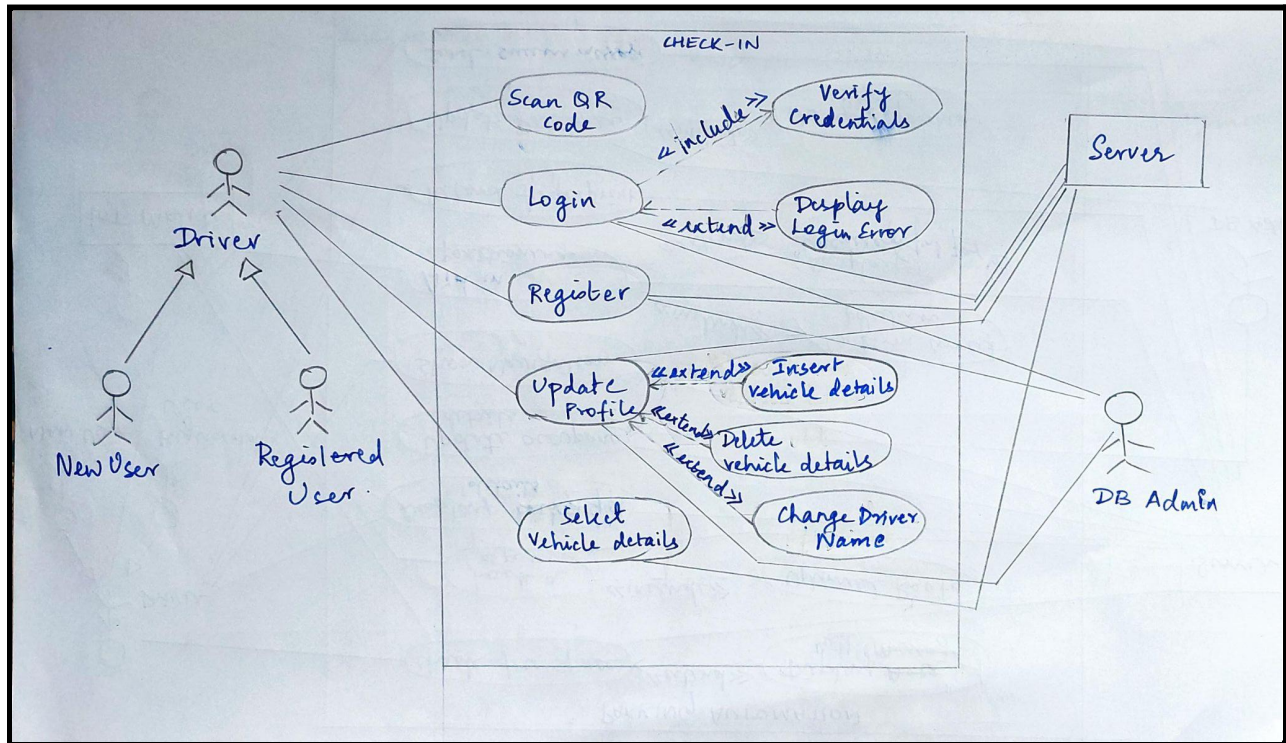 CHECK-IN
Scan QR
code
«include»
Verify
Credentials
Server
Login
«extend»
Display
Login Error
Driver
Register
Update
Profile
«extend»
Insert
vehicle details
«extend»
Delete
vehicle details
«extend»
Change Driver
Name
Select
vehicle details
New User
Registered
User.
DB Admin